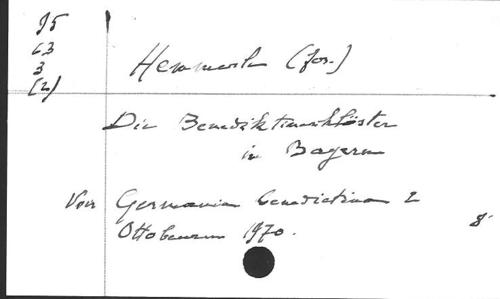 95
63
3
(2)
Hemmerle (Jos.)
Die Benediktinerklöster
in Bayern
Voir Germania benedictina 2
Ottobeuren 1970.
8°